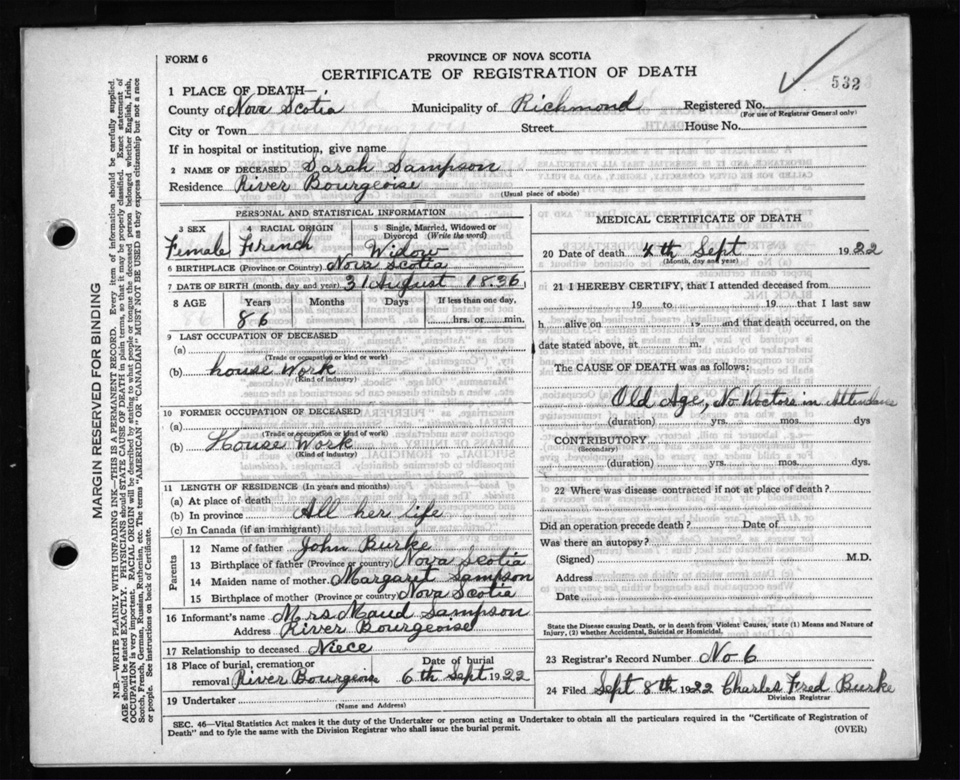 FORM 6
PROVINCE OF NOVA SCOTIA
CERTIFICATE OF REGISTRATION OF DEATH
532
1 PLACE OF DEATH—
County of Nova Scotia Municipality of Richmond Registered No.
(For use of Registrar General only)
City or Town Street House No.
If in hospital or institution, give name
2 NAME OF DECEASED Sarah Sampson
Residence River Bourgeoise
(Usual place of abode)
PERSONAL AND STATISTICAL INFORMATION
3 SEX 4 RACIAL ORIGIN 5 Single, Married, Widowed or Divorced (Write the word)
Female French Widow
6 BIRTHPLACE (Province or Country) Nova Scotia
7 DATE OF BIRTH (month, day, and year) 31 August 1836
8 AGE Years Months Days If less than one day,
86 hrs. or min.
9 LAST OCCUPATION OF DECEASED
(a)
(Trade or occupation or kind of work)
(b) house Work
(Kind of industry)
10 FORMER OCCUPATION OF DECEASED
(a)
(Trade or occupation or kind of work)
(b) House Work
(Kind of industry)
11 LENGTH OF RESIDENCE (In years and months)
(a) At place of death
(b) In province All her life
(c) In Canada (if an immigrant)
Parents
12 Name of father John Burke
13 Birthplace of father (Province or country) Nova Scotia
14 Maiden name of mother Margaret Sampson
15 Birthplace of mother (Province or country) Nova Scotia
16 Informant's name Mrs Maud Sampson
Address River Bourgeoise
17 Relationship to deceased Niece
18 Place of burial, cremation or Date of burial
removal River Bourgeois 6th Sept 1922
19 Undertaker
(Name and Address)
MEDICAL CERTIFICATE OF DEATH
20 Date of death 4th Sept 1922
(Month, day and year)
21 I HEREBY CERTIFY, that I attended deceased from
19 to 19 that I last saw
h alive on 19 and that death occurred, on the
date stated above, at m.
The CAUSE OF DEATH was as follows:
Old Age, No Doctors in Attendans
(duration) yrs. mos. dys
CONTRIBUTORY
(Secondary)
(duration) yrs. mos. dys.
22 Where was disease contracted if not at place of death?
Did an operation precede death? Date of
Was there an autopsy?
(Signed) M.D.
Address
Date
State the Disease causing Death, or in death from Violent Causes, state (1) Means and Nature of
Injury, (2) whether Accidental, Suicidal or Homicidal.
23 Registrar's Record Number No 6
24 Filed Sept 8th 1922 Charles Fred Burke
Division Registrar
SEC. 46—Vital Statistics Act makes it the duty of the Undertaker or person acting as Undertaker to obtain all the particulars required in the "Certificate of Registration of
Death" and to fyle the same with the Division Registrar who shall issue the burial permit.
(OVER)
MARGIN RESERVED FOR BINDING
N.B.—WRITE PLAINLY WITH UNFADING INK—THIS IS A PERMANENT RECORD. Every item of information should be carefully supplied.
AGE should be stated EXACTLY. PHYSICIANS should STATE CAUSE OF DEATH in plain terms, so that it may be properly classified. Exact statement of
OCCUPATION is very important. RACIAL ORIGIN will be described by stating to what people or tongue the deceased person belonged whether English, Irish,
Scotch, French, German, Russian, Ruthenian, etc. The terms "AMERICAN" OR "CANADIAN" MUST NOT BE USED as they express citizenship but not a race
or people. See instructions on back of Certificate.